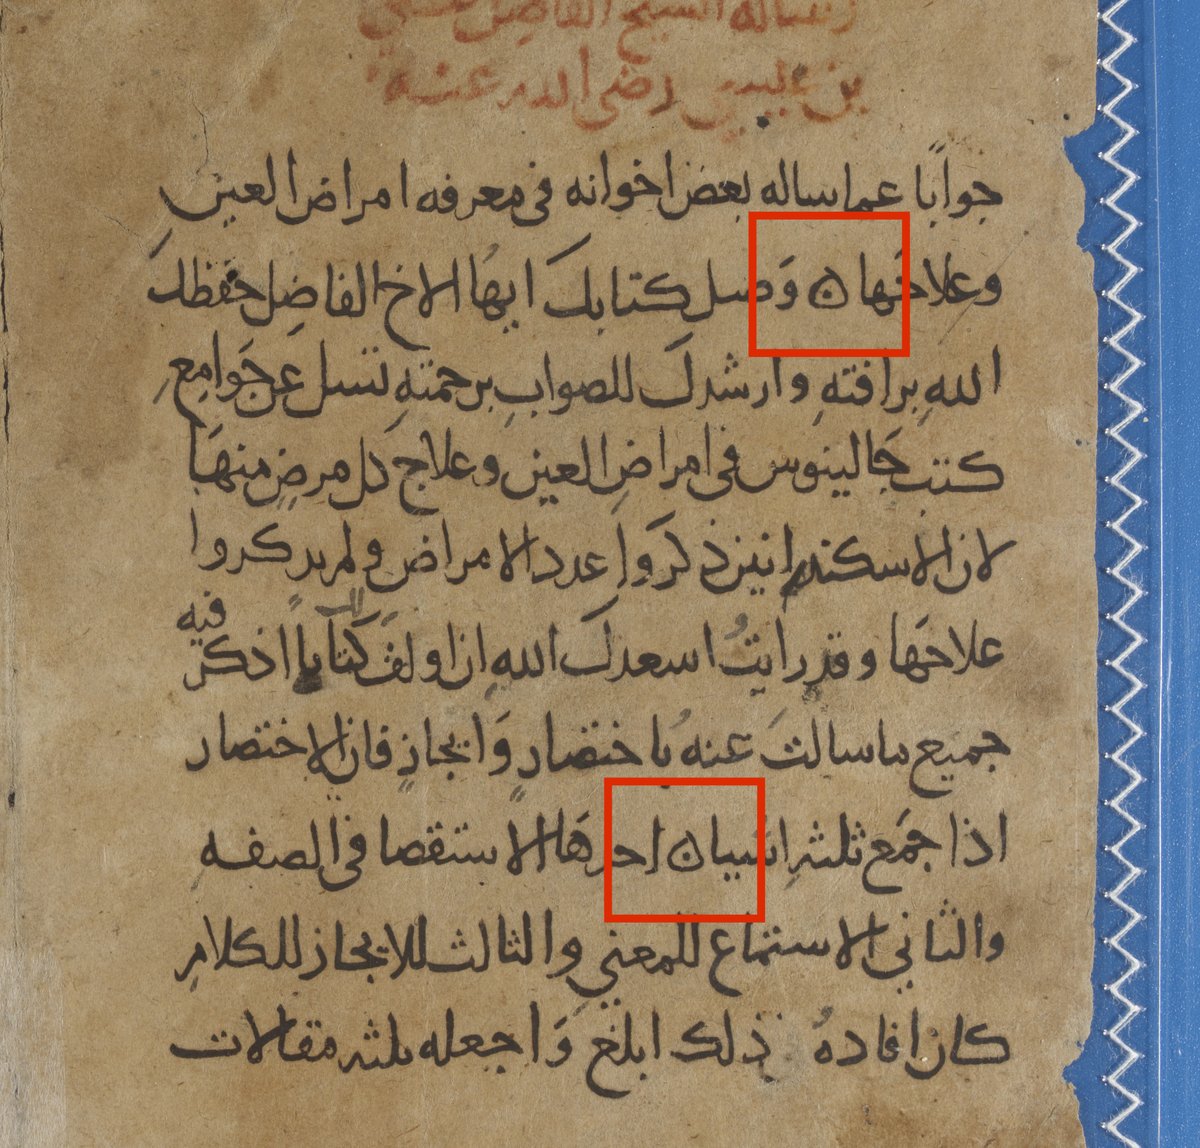 رساله الشيخ الفاضل عيسى
بن عيسى رضى الله عنه
جوابًا عما ساله بعض اخوانه فى معرفه امراض العين
وعلاجها ن وَصل كتابكَ ايهَا الاخ الفاضِل حفظكَ
اللهِ برافتهِ وارشدكَ للصوابِ برحمتهِ تسل عَن جَوامعِ
كتب جَالينوس فى امراضِ العين وعلاج كل مرضٍ منهَا
لان الاسكندرانيين ذكَروا عدد الامراض ولم يذكروا
علاجَها وقد رايتُ اسعدكَ اللهِ ان اولف كتَابًا اذكر فيه
جميع ما سالتَ عنهُ باختصارٍ وَايجازٍ فان الاختصار
اذا جمَع ثلثهِ اشَيا ن احدهَا الاستقصا فى الصفه
والثاني الاستماع للمعني والثالث للايجاز للكلامِ
كان افادهُ ذلك ابلغ وَاجعله ثلثه مقالات